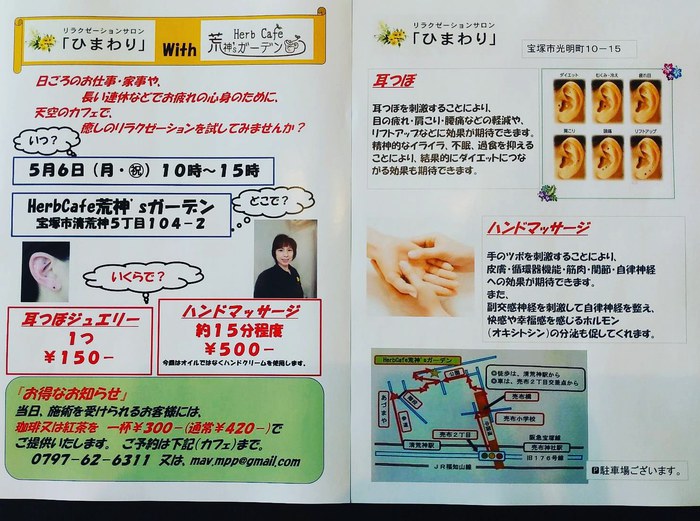 リラクゼーションサロン
「ひまわり」
With
Herb Cafe
荒神'sガーデン
日ごろのお仕事・家事や、
長い連休などでお疲れの心身のために、
天空のカフェで、
癒しのリラクゼーションを試してみませんか？
いつ？
5月6日（月・㊗）10時～15時
どこで？
HerbCafe荒神'sガーデン
宝塚市清荒神5丁目104－2
いくらで？
耳つぼジュエリー
1つ
￥150－
ハンドマッサージ
約15分程度
￥500－
今回はオイルではなくハンドクリームを使用します。
「お得なお知らせ」
当日、施術を受けられるお客様には、
珈琲又は紅茶を 一杯￥300－(通常￥420－)で
ご提供いたします。 ご予約は下記(カフェ)まで。
0797-62-6311 又は、mav.mpp@gmail.com
リラクゼーションサロン
「ひまわり」
宝塚市光明町10－15
耳つぼ
耳つぼを刺激することにより、
目の疲れ・肩こり・腰痛などの軽減や、
リフトアップなどに効果が期待できます。
精神的なイライラ、不眠、過食を抑える
ことにより、結果的にダイエットにつな
がる効果も期待できます。
ダイエット
むくみ・冷え
疲れ目
肩こり
腰痛
リフトアップ
ハンドマッサージ
手のツボを刺激することにより、
皮膚・循環器機能・筋肉・関節・自律神経
への効果が期待できます。
また、
副交感神経を刺激して自律神経を整え、
快感や幸福感を感じるホルモン
（オキシトシン）の分泌も促してくれます。
HerbCafe荒神'sガーデン
公園
徒歩は、清荒神駅から
車は、売布2丁目交差点から
あづまや
参道
売布橋
売布小学校
売布2丁目
阪急宝塚線
清荒神駅
売布神社駅
旧176号線
JR福知山線
🅿駐車場ございます。